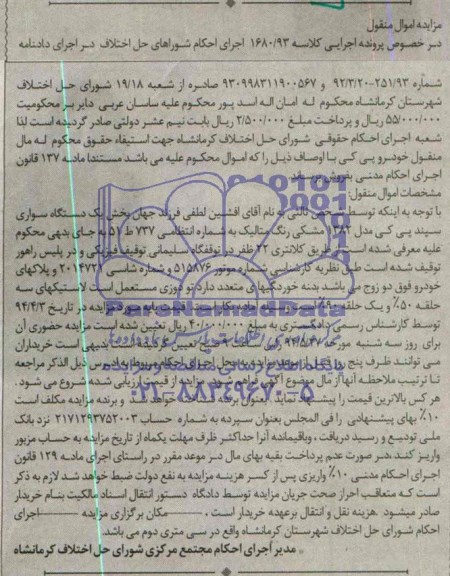 مزایده اموال منقول
در خصوص پرونده اجرایی کلاسه ۱۶۸۰/۹۳ اجرای احکام شوراهای حل اختلاف در اجرای دادنامه
شماره ۲۵۱/۹۳-۹۲/۳/۲۰ و ۹۳۰۹۹۸۳۱۱۹۰۰۵۶۷ صادره از شعبه ۱۹/۱۸ شورای حل اختلاف
شهرستان کرمانشاه محکوم له امان اله اسد پور محکوم علیه ساسان عربی دایر بر محکومیت
۵۵/۰۰۰/۰۰۰ ریال و پرداخت مبلغ ۲/۵۰۰/۰۰۰ ریال بابت نیم عشر دولتی صادر گردیده است لذا
شعبه اجرای احکام حقوقی شورای حل اختلاف کرمانشاه جهت استیفاء حقوق محکوم له مال
منقول خودرو پی کی با اوصاف ذیل را که اموال محکوم علیه می باشد مستندا ماده ۱۳۷ قانون
اجرای احکام مدنی بفروش برساند
مشخصات اموال منقول:
با توجه به اینکه توسط شخص ثالثی به نام آقای افشین لطفی فرزند جهان بخش یک دستگاه سواری
سیند پی کی مدل ۱۳۸۲ مشکی رنگ متالیک به شماره انتظامی ۷۳۷ ط ۵۱ به جای بدهی محکوم
علیه معرفی شده است از طریق کلانتری ۲۲ ظفر در توقفگاه سلیمانی توقیف فیزیکی و در پلیس راهور
توقیف شده است طبق نظریه کارشناسی شماره موتور ۵۱۵۸۷۶ و شماره شاسی ۲۰۱۴۷۲۱ و پلاکهای
خودرو فوق دو زوج می باشد بدنه خوردگیهای متعدد دارد تو دوزی مستعمل است لاستیکهای سه
حلقه ۵۰٪ و یک حلقه ۹۰٪
توسط کارشناس رسمی دادگستری به مبلغ ۴۰/۰۰۰/۰۰۰ ریال تعیین شده است مزایده حضوری آن
برای روز سه شنبه مورخه
می توانند ظرف پنج روز قبل از موعد مزایده به محل اجرای احکام مربوط به آدرس ذیل الذکر مراجعه
تا ترتیب ملاحظه آنها از مال موضوع آگهی فراهم شود. مزایده از قیمت ارزیابی شده شروع می شود.
هر کس بالاترین قیمت را پیشنهاد نماید بعنوان برنده شناخته خواهد شد و برنده مزایده مکلف است
۱۰٪ بهای پیشنهادی را فی المجلس بعنوان سپرده به شماره حساب ۲۱۷۱۲۹۳۷۵۲۰۰۳ نزد بانک
ملی تودیع و رسید دریافت، وباقیمانده آنرا حداکثر ظرف مهلت یکماه از تاریخ مزایده به حساب مزبور
واریز کند در صورت عدم پرداخت بقیه بهای مال در موعد مقرر در راستای اجرای ماده ۱۲۹ قانون
اجرای احکام مدنی ۱۰٪ واریزی پس از کسر هزینه مزایده به نفع دولت ضبط خواهد شد لازم به ذکر
است که متعاقب احراز صحت جریان مزایده توسط دادگاه دستور انتقال اسناد مالکیت بنام خریدار
صادر میشود. هزینه نقل و انتقال برعهده خریدار است. ـــــ مکان برگزاری مزایده ـــــ اجرای
احکام شورای حل اختلاف شهرستان کرمانشاه واقع در سی متری دوم می باشد.
مدیر اجرای احکام مجتمع مرکزی شورای حل اختلاف کرمانشاه
ParsNamadData
۰۲۱-۸۸۳۴۹۶۷۰-۵